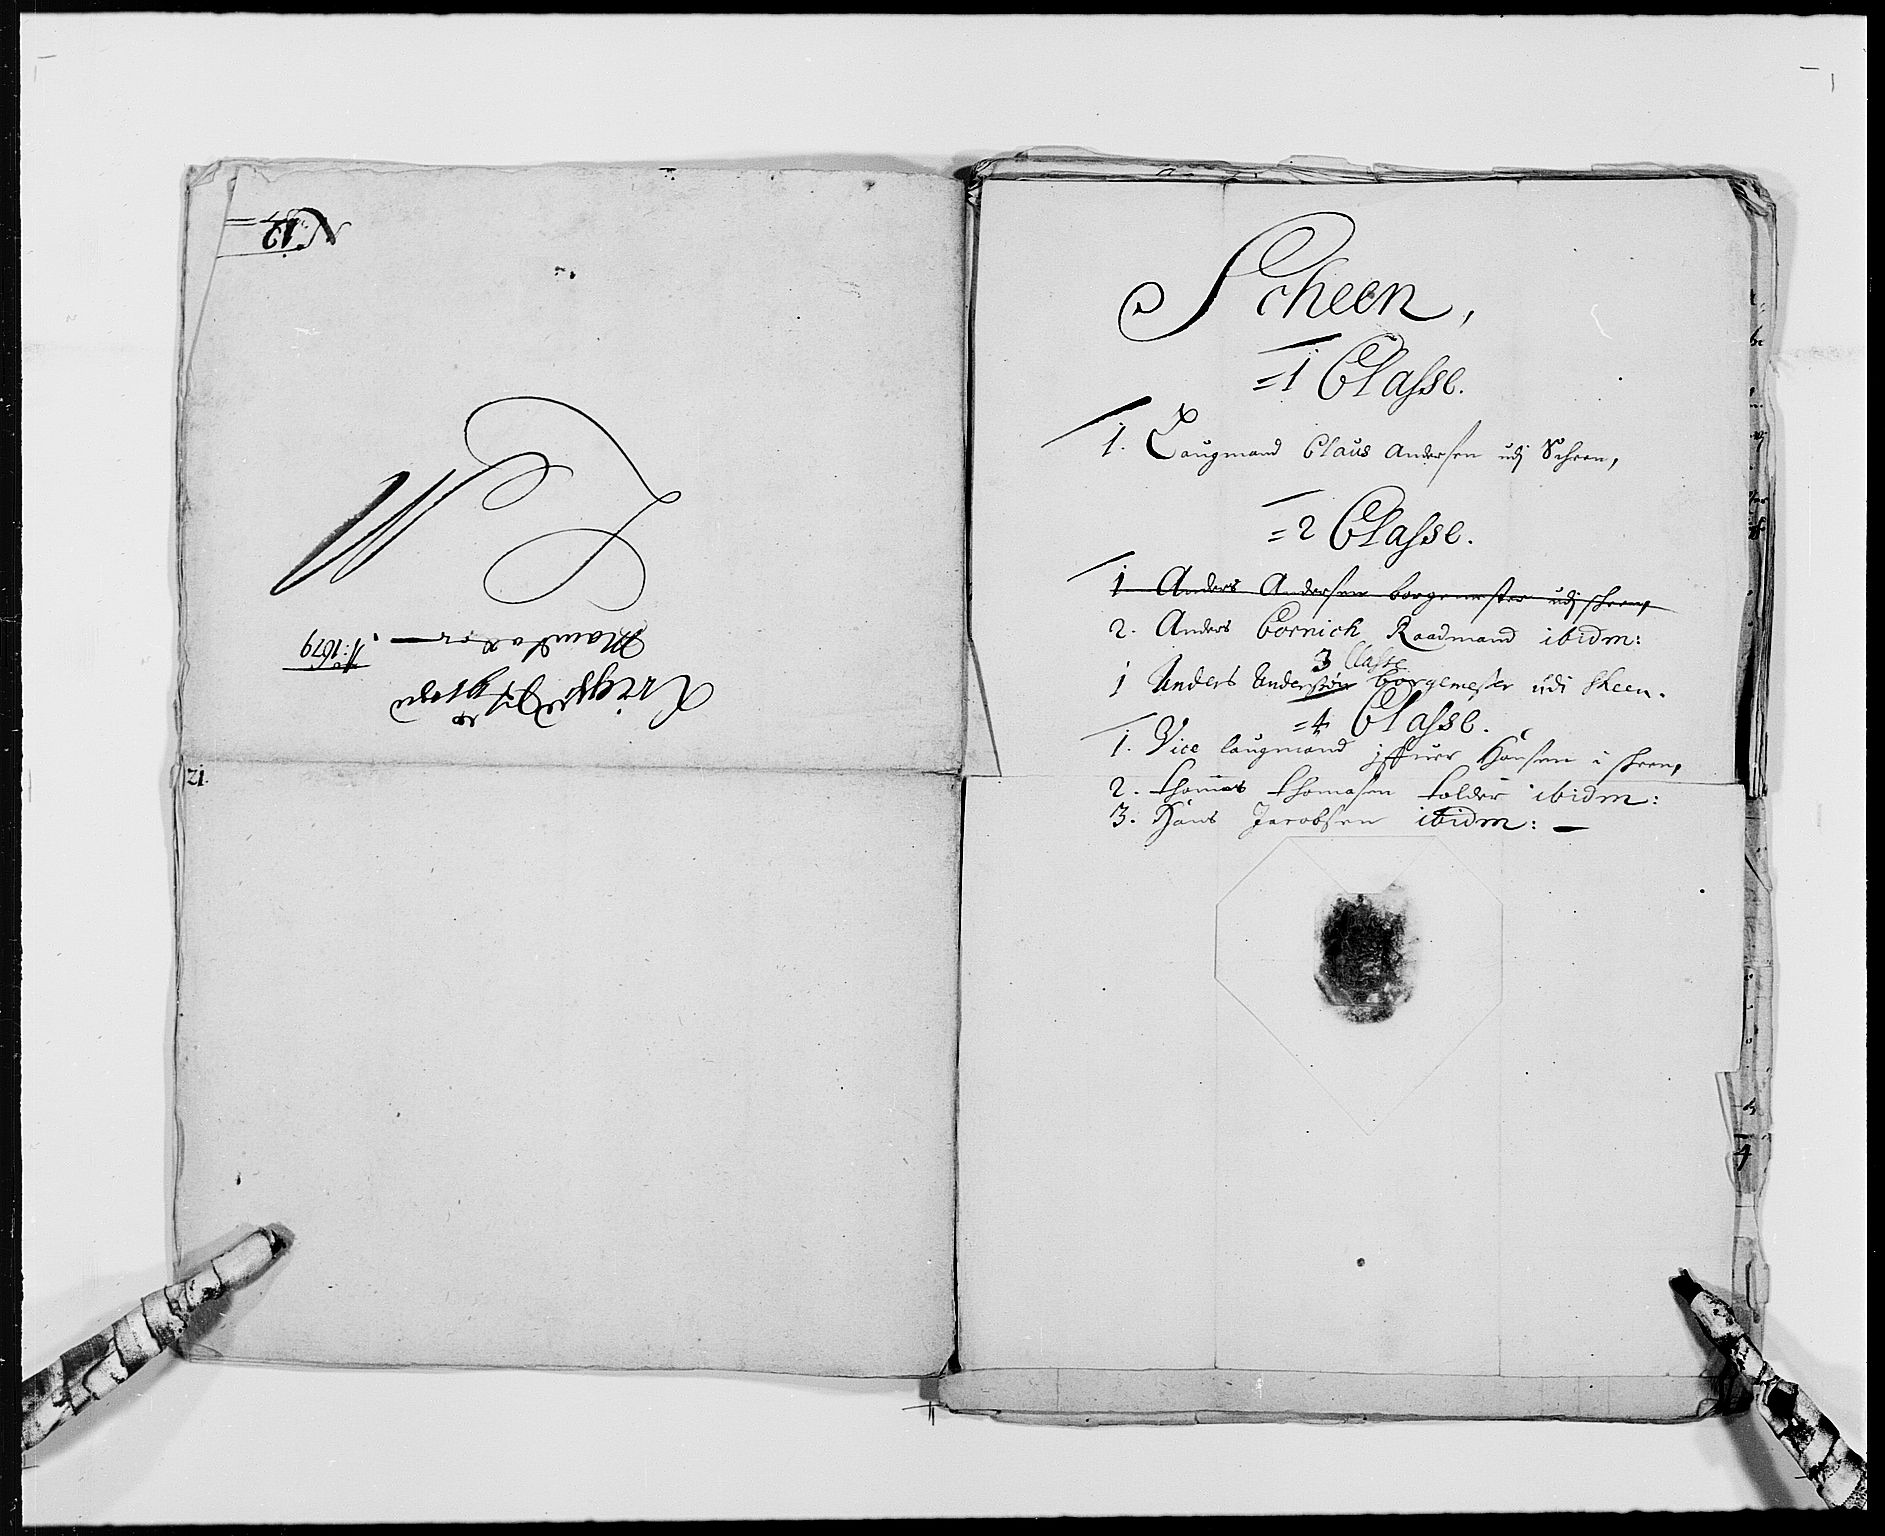 No 12
Krigs Styrens
Mandater — Ao: 1679
21.
Scheen,
=1 Classe.
1. Laugmand Claus Andersen udj Scheen,
=2 Classe.
1 Anders Andersen borgemester udj scheen,
2. Anders Cornich Raadmand ibidm:
3 Classe
1 Anders Anders borgemester udi Skeen.
=4 Classe.
1. Vice laugmand Hansen i scheen,
2. thomas thomasen tolder ibidm:
3. Hans Jacobsen ibidm: —